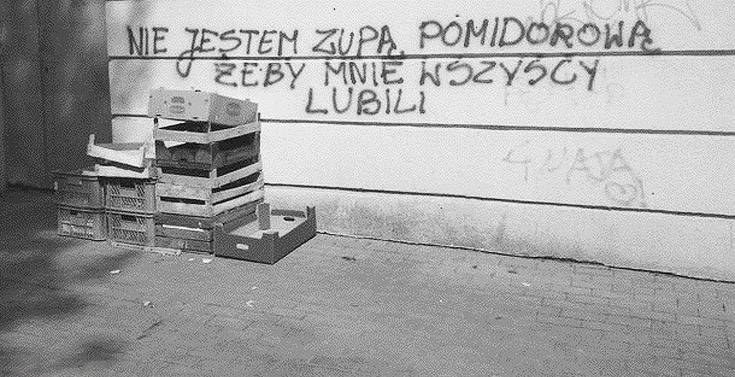 NIE JESTEM ZUPĄ POMIDOROWĄ
ŻEBY MNIE WSZYSCY
LUBILI